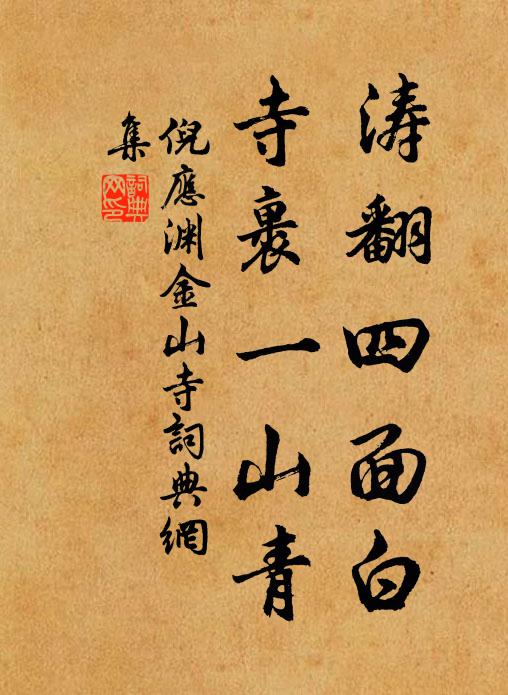 涛翻四面白
寺裹一山青
倪應渊金山寺詞典網
集
詞典网印